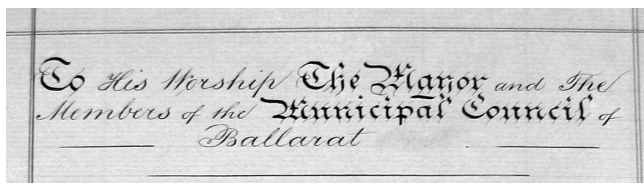 To His Worship The Mayor and The
Members of the Municipal Council of
Ballarat